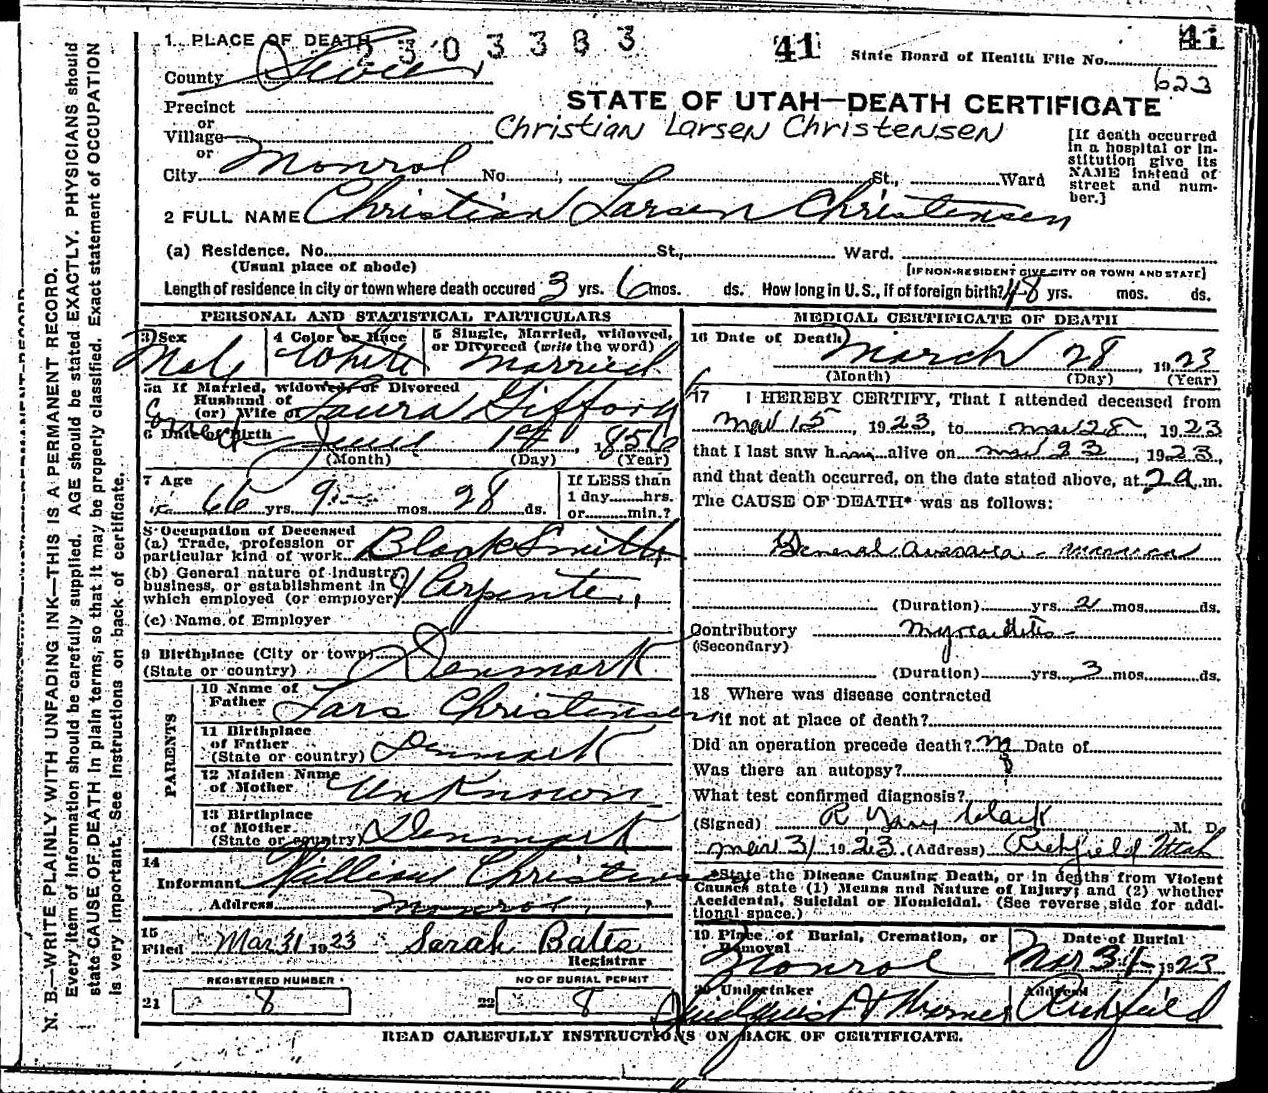 N. B.—WRITE PLAINLY, WITH UNFADING INK—THIS IS A PERMANENT RECORD.
Every item of information should be carefully supplied. AGE should be stated EXACTLY. PHYSICIANS should
state CAUSE OF DEATH in plain terms, so that it may be properly classified. Exact statement of OCCUPATION
is very important. See instructions on back of certificate.
1. PLACE OF DEATH 2303383 41 State Board of Health File No. 41
County Sevier 623
Precinct STATE OF UTAH—DEATH CERTIFICATE
or
Village Christian Larsen Christensen
or
City Monroe No. St., Ward
[If death occurred
in a hospital or in-
stitution give its
NAME instead of
street and num-
ber.]
2 FULL NAME Christian Larsen Christensen
(a) Residence. No. St., Ward.
(Usual place of abode) [IF NON-RESIDENT GIVE CITY OR TOWN AND STATE]
Length of residence in city or town where death occured 3 yrs. 6 mos. ds. How long in U.S., if of foreign birth? 48 yrs. mos. ds.
PERSONAL AND STATISTICAL PARTICULARS
3 Sex 4 Color or Race 5 Single, Married, widowed,
or Divorced (write the word)
Male White Married
5a If Married, widowed, or Divorced
Husband of
(or) Wife of Laura Gifford
6 Date of Birth June 1st, 1856
(Month) (Day) (Year)
7 Age 66 yrs. 9 mos. 28 ds.
If LESS than
1 day......hrs.
or......min.?
8 Occupation of Deceased
(a) Trade, profession or
particular kind of work Blacksmith
(b) General nature of industry,
business, or establishment in
which employed (or employer) & Carpenter
(c) Name of Employer
9 Birthplace (City or town)
(State or country) Denmark
PARENTS
10 Name of
Father Lars Christensen
11 Birthplace
of Father
(State or country) Denmark
12 Maiden Name
of Mother Unknown
13 Birthplace
of Mother
(State or country) Denmark
14
Informant William Christensen
Address Monroe
15
Filed Mar 31 1923 Sarah Bates
Registrar
REGISTERED NUMBER NO OF BURIAL PERMIT
21 8 22 8
MEDICAL CERTIFICATE OF DEATH
16 Date of Death March 28, 1923
(Month) (Day) (Year)
17 I HEREBY CERTIFY, That I attended deceased from
Mar 15, 1923, to Mar 28, 1923
that I last saw him alive on Mar 23, 1923,
and that death occurred, on the date stated above, at 2 a.m.
The CAUSE OF DEATH* was as follows:
General
(Duration) yrs. 2 mos. ds.
Contributory Myocarditis
(Secondary)
(Duration) yrs. 3 mos. ds.
18 Where was disease contracted
if not at place of death?
Did an operation precede death? Date of
Was there an autopsy?
What test confirmed diagnosis?
(Signed) R Clark M. D.
Mar 31 1923 (Address) Richfield Utah
*State the Disease Causing Death, or in deaths from Violent
Causes state (1) Means and Nature of Injury; and (2) whether
Accidental, Suicidal or Homicidal. (See reverse side for addi-
tional space.)
19 Place of Burial, Cremation, or
Removal Date of Burial
Monroe Mar 31 1923
20 Undertaker Address
Richfield
READ CAREFULLY INSTRUCTIONS ON BACK OF CERTIFICATE.